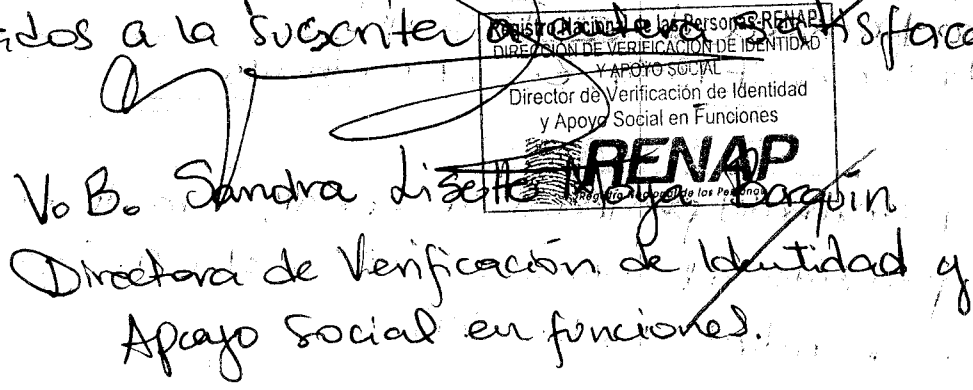 a la suscrita entera satisfacc
Registro Nacional de las Personas-RENAP
DIRECCIÓN DE VERIFICACIÓN DE IDENTIDAD
Y APOYO SOCIAL
Director de Verificación de Identidad
y Apoyo Social en Funciones
RENAP
Registro Nacional de las Personas
Vo. Bo. Sandra Lisette Barquin
Directora de Verificación de Identidad y
Apoyo Social en funciones.